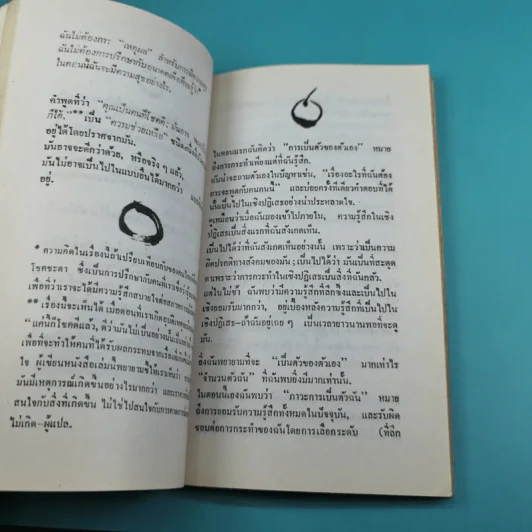 ฉันไม่ต้องกระ "เหตุผล" สำหรับการมีความ
ฉันไม่ต้องการปรึกษากับอนาคตเพื่อที่จะรู้ว่า
ในตอนนี้ฉันจะมีความสุขอย่างไร.
คำพูดที่ว่า "คุณเป็นคนที่โชคดี: มันอาจ
ก็ได้." เป็น "ความช่วยเหลือ" ชนิดหนึ่งที่
อยู่ได้โดยปราศจากมัน.
มันอาจจะดีกว่าด้วย, หรือจริง ๆ แล้ว,
มันไม่อาจเป็นไปในแบบอื่นได้มากกว่า
อยู่.
* ความคิดในเรื่องนี้ถ้าเปรียบเทียบกับของ
โชคชะตา ซึ่งเป็นการปรึกษากับคนที่
เพื่อที่ว่าเราจะได้มีความรู้สึกสบายใจต่อสภาพ
** เรื่องนี้จะเห็นได้ เมื่อตอนที่เราเกิดอุบัติเหตุ
"แค่นี้ก็โชคดีแล้ว, ดีว่ามันไม่เป็นอย่างนั้น
เพื่อที่จะทำให้คนที่ได้รับผลกระทบจากเรื่อง
ใจ ผู้เขียนหนังสือเล่มนี้พยายามชี้ให้เราเห็นว่า
มันมีเหตุการณ์เกิดขึ้นอย่างไรมากกว่า และเรา
สนใจกับสิ่งที่เกิดขึ้น ไม่ใช่ไปสนใจกับการคาด
ไม่เกิด-ผู้แปล.
ในตอนแรกฉันคิดว่า "การเป็นตัวของตัวเอง" หมาย
ถึงการกระทำเพียงแต่ที่ฉันรู้สึก.
ฉันน่าจะถามตัวเองในปัญหาเช่น, "เรื่องอะไรที่ฉันต้อง
การจะพูดกับคนคนนี้" และบ่อยครั้งทีเดียวคำตอบที่ได้
นั้นเป็นไปในเชิงปฏิเสธอย่างน่าประหลาดใจ.
ดูเหมือนว่าเมื่อฉันมองเข้าไปภายใน, ความรู้สึกในเชิง
ปฏิเสธเป็นสิ่งแรกที่ฉันสังเกตเห็น.
เป็นไปได้ว่าที่ฉันสังเกตเห็นอย่างนั้น เพราะว่าเป็นความ
ผิดปรกติทางสังคมของมัน; เป็นไปได้ว่า มันเป็นที่สะดุด
ตาเพราะว่าการกระทำในเชิงปฏิเสธเป็นสิ่งที่ฉันกลัว.
แต่ในไม่ช้า ฉันพบว่ามีความรู้สึกที่ลึกซึ้งและเป็นไปใน
เชิงยอมรับมากกว่า, อยู่เบื้องหลังความรู้สึกที่เป็นไปใน
เชิงปฏิเสธ-ถ้าฉันอยู่เฉย ๆ เป็นเวลายาวนานพอที่จะดู
มัน.
ยิ่งฉันพยายามที่จะ "เป็นตัวของตัวเอง" มากเท่าไร
"จำนวนตัวฉัน" ที่ฉันพบยิ่งมีมากเท่านั้น.
ในตอนนี้เองฉันพบว่า "ภาวะการเป็นตัวฉัน" หมาย
ถึงการยอมรับความรู้สึกทั้งหมดในปัจจุบัน, และรับผิด
ชอบต่อการกระทำของฉันโดยการเลือกระดับ (ที่ลึก